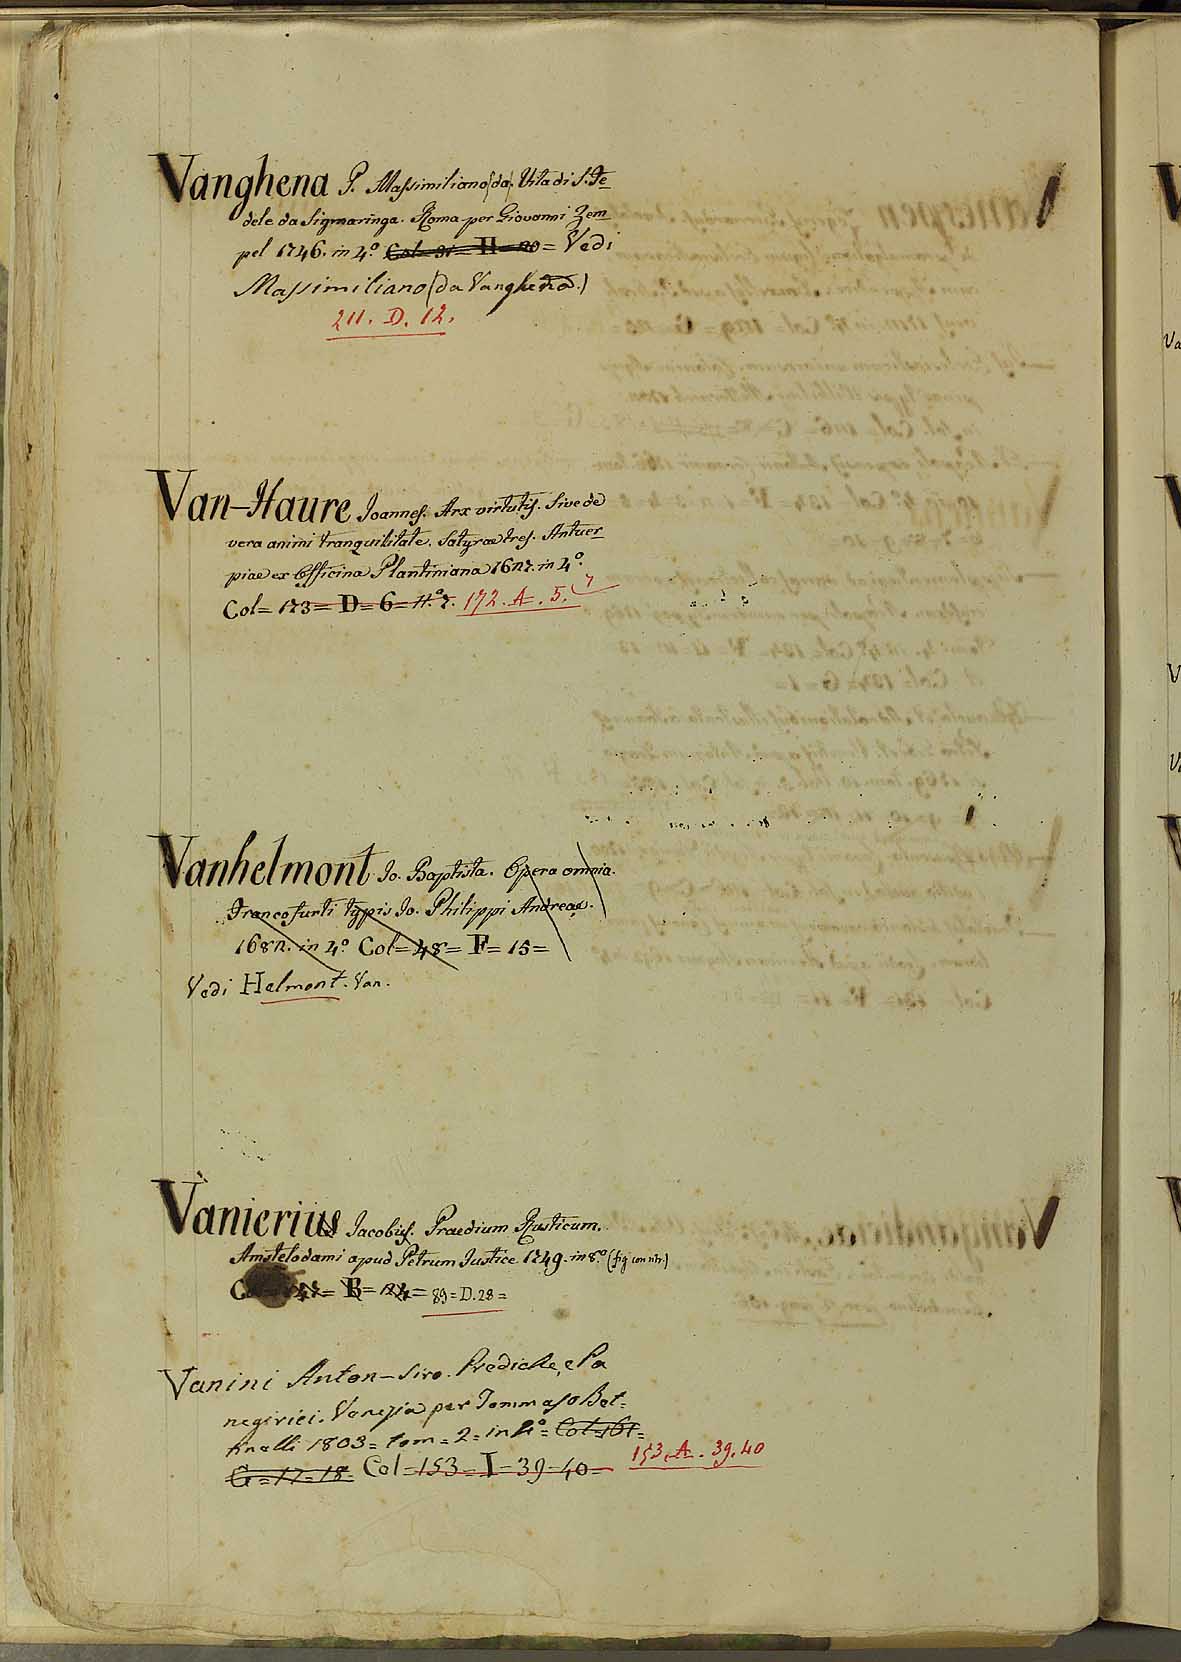 Vanghena P. Massimiliano (da). Vita di S. Fe=
dele da Sigmaringa. Roma per Giovanni Zem=
pel 1746. in 4.º Col= 31= H= 20= Vedi
Massimiliano (da Vanghena.)
211. D. 12.
Van-Haure Joannes. Arx virtutis. Sive de
vera animi tranquilitate. Satyrae tres. Antuer=
piae ex Officina Plantiniana 1627. in 4.º
Col= 173= D= 6= n.º 7. 172. A. 5. 7
Vanhelmont Jo. Baptista. Opera omnia.
Francofurti typis Jo. Philippi Andreae.
1682. in 4.º Col= 48= F= 15=
Vedi Helmont. Van.
Vanierius Jacobus. Praedium Rusticum.
Amstelodami apud Petrum Justice 1749. in 8.º (fig con ritr.)
B= 24= 89= D. 28=
Vanini Anton-Siro. Prediche, e Pa
negirici. Venezia per Tommaso Bet=
tinelli 1803= tom= 2= in 4.º= Col=161=
G= 17= 18= Col=153= I= 39-40= 153. A. 39. 40